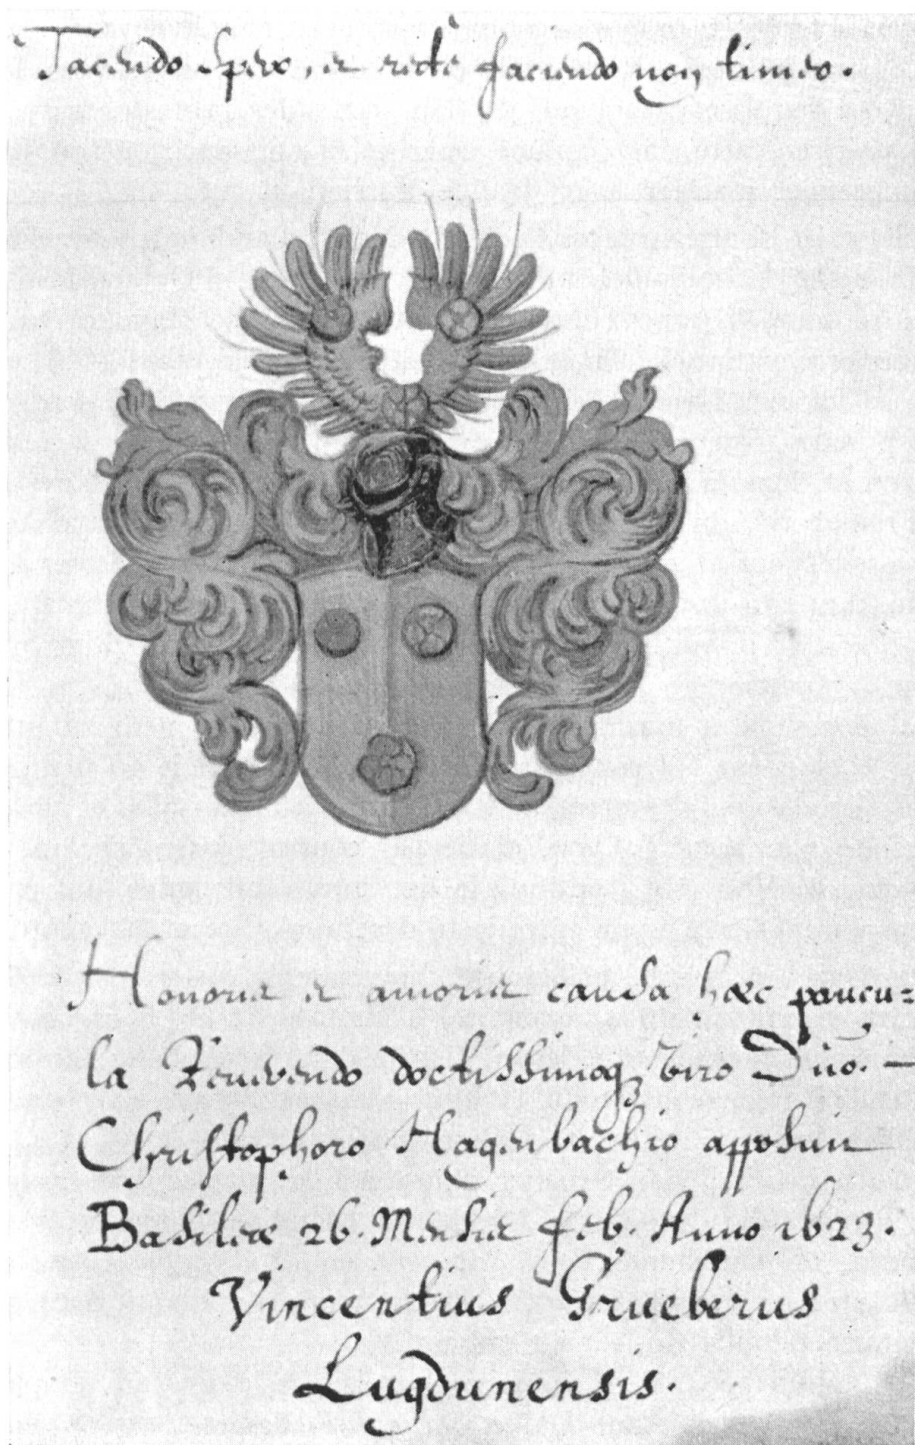 Tacendo Spero, et rectè faciendo non timeo.
Honoris et amoris causa hæc paucu=
la Reverendo doctissimoq; Viro Dño. –
Christophoro Hagenbachio apposuit
Basileæ 26. Mensis feb. Anno 1623.
Vincentius Grueberus
Lugdunensis.